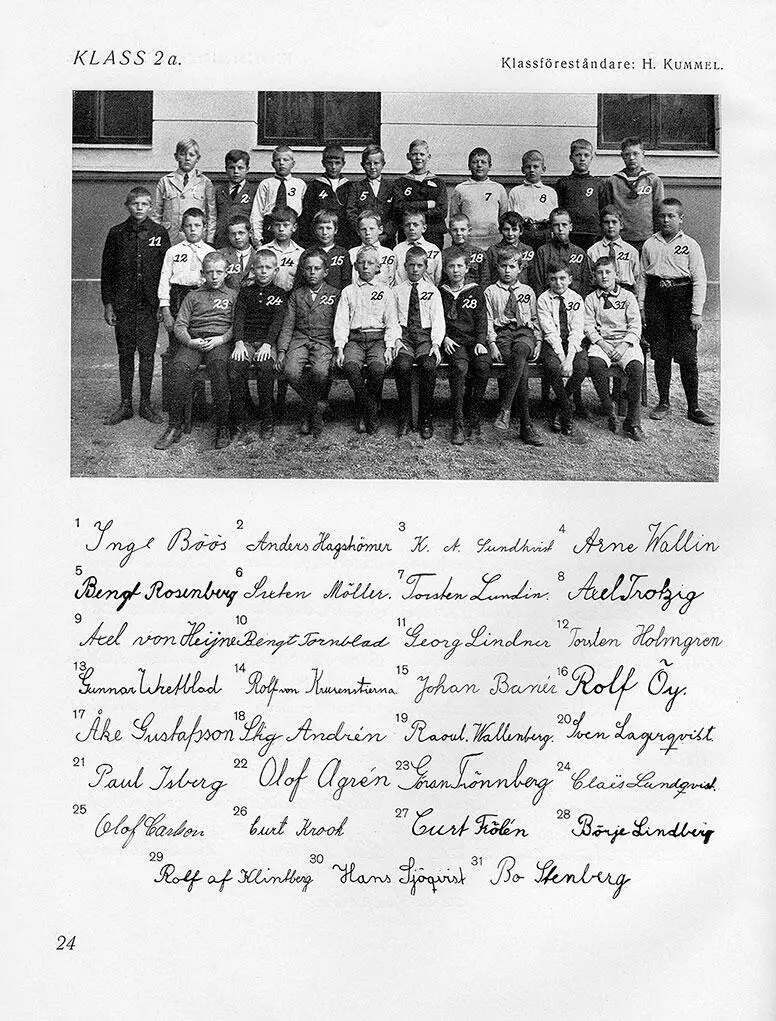 KLASS 2a.
Klassföreståndare: H. KUMMEL.
2 3 4 5 6 7 8 9 10
11 12 13 14 15 16 17 18 19 20 21 22
23 24 25 26 27 28 29 30 31
1 Inge Böös 2 Anders Hagströmer 3 K. A. Sundkvist 4 Arne Wallin
5 Bengt Rosenberg 6 Sixten Möller. 7 Torsten Lundin. 8 Axel Trotzig
9 Axel von Heijne 10 Bengt Tornblad 11 Georg Lindner 12 Torsten Holmgren
13 Gunnar Uhetblad 14 Rolf von Krusenstierna 15 Johan Banér 16 Rolf Öy.
17 Åke Gustafsson 18 Stig Andrén 19 Raoul. Wallenberg. 20 Sven Lagerqvist.
21 Paul Isberg 22 Olof Ågrén 23 Göran Trönnberg 24 Claës Lundqvist.
25 Olof Carlson 26 Curt Krook 27 Curt Frölén 28 Börje Lindberg
29 Rolf af Klintberg 30 Hans Sjöqvist 31 Bo Stenberg
24